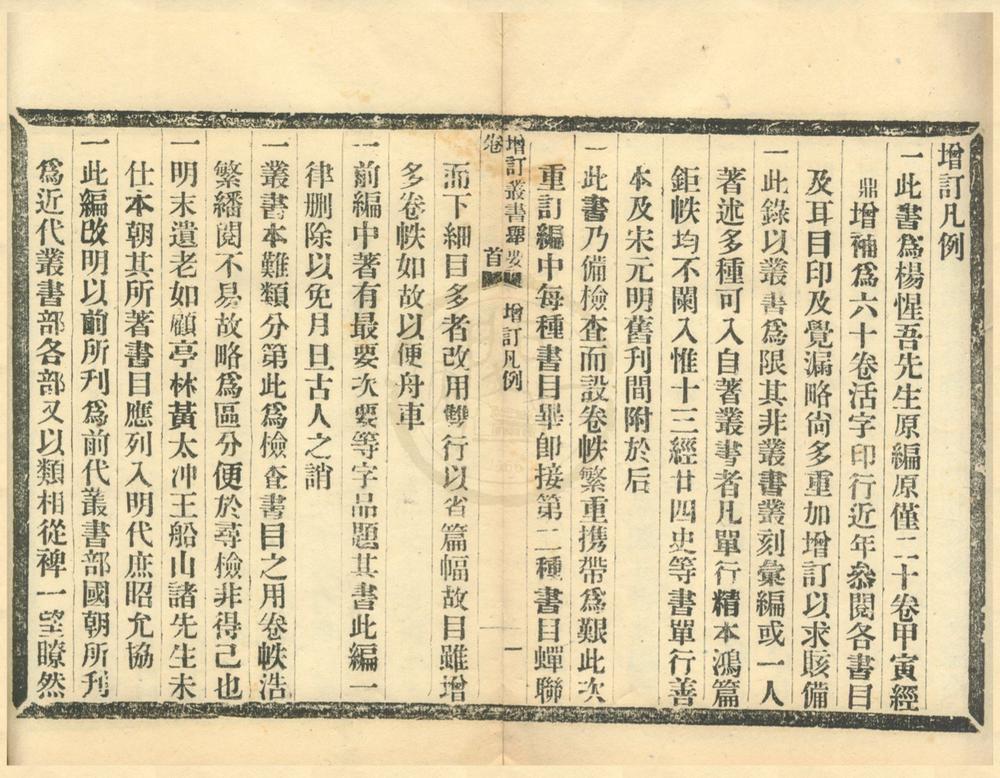 增訂凡例
一此書爲楊惺吾先生原編原僅二十卷甲寅經
鼎增補爲六十卷活字印行近年叅閱各書目
及耳目印及覺漏略尙多重加增訂以求賅備
一此錄以叢書爲限其非叢書叢刻彙編或一人
著述多種可入自著叢書者凡單行精本鴻篇
鉅帙均不闌入惟十三經廿四史等書單行善
本及宋元明舊刊間附於后
一此書乃備檢查而設卷帙繁重携帶爲艱此次
重訂編中每種書目畢卽接第二種書目蟬聯
增訂叢書舉要
卷首
增訂凡例
一
而下細目多者改用雙行以省篇幅故目雖增
多卷帙如故以便舟車
一前編中著有最要次要等字品題其書此編一
律刪除以免月旦古人之誚
一叢書本難類分第此爲檢查書目之用卷帙浩
繁繙閱不易故略爲區分便於尋檢非得已也
一明末遺老如顧亭林黃太冲王船山諸先生未
仕本朝其所著書目應列入明代庶昭允協
一此編改明以前所刊爲前代叢書部國朝所刋
爲近代叢書部各部又以類相從裨一望瞭然